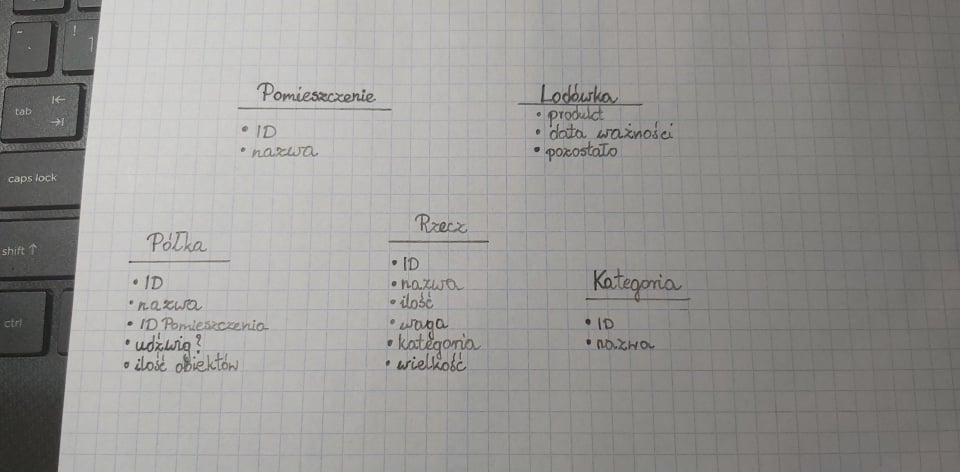 tab
caps lock
shift ↑
ctrl
~
`
!
1
Pomieszczenie
• ID
• nazwa
Lodówka
• produkt
• data ważności
• pozostało
Półka
• ID
• nazwa
• ID Pomieszczenia
• udźwig?
• ilość obiektów
Rzecz
• ID
• nazwa
• ilość
• waga
• kategoria
• wielkość
Kategoria
• ID
• nazwa